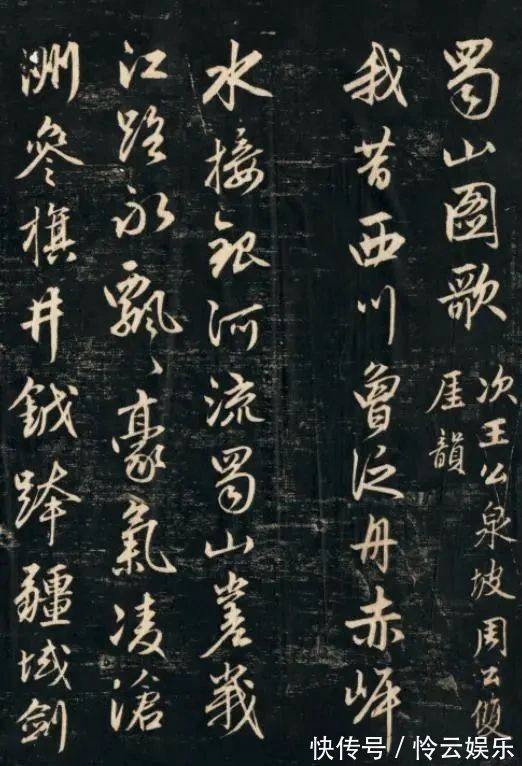 蜀山圖歌
次王公泉坡周公雙
厓韻
我昔西川曾泛舟赤岸
水接銀河流蜀山嵳峩
江路永飄飄豪氣凌滄
洲參旗井鉞疆域劍
快传号 / 怜云娱乐